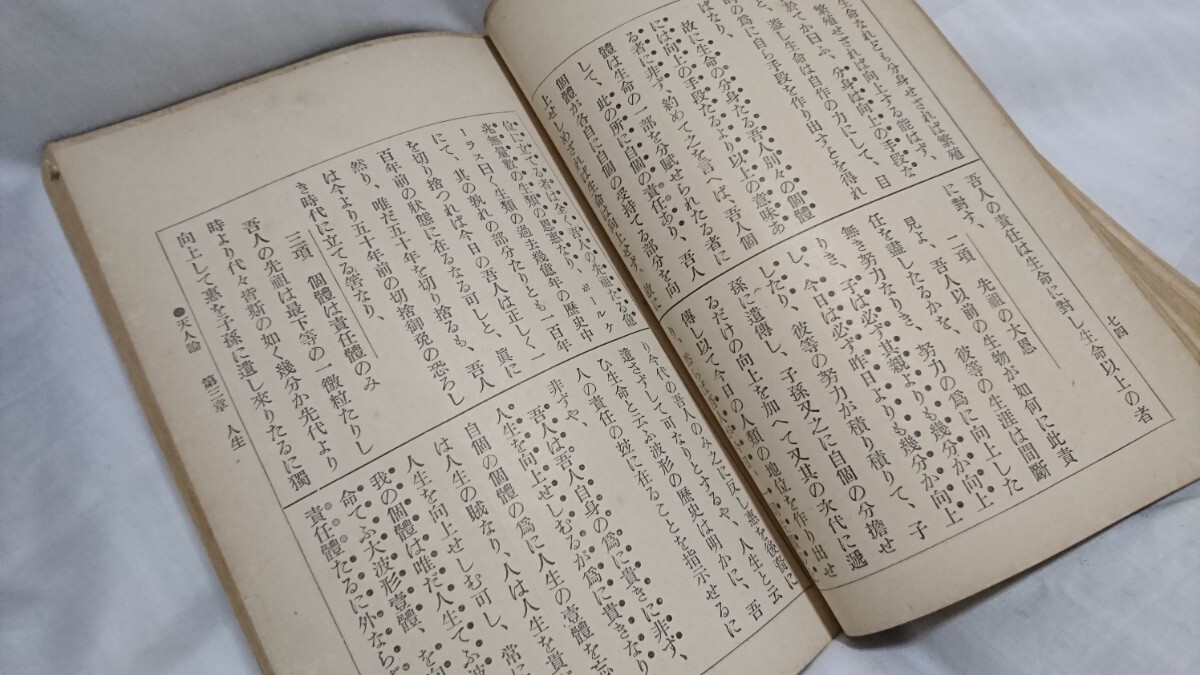 七四
生命なれども分身せざれば繁殖
繁殖せざれば向上する能はず、
敢てか曰ふ、分身は向上の手段な
と、蓋し生命は自作の力にして、目
的の爲に自ら手段を作り出すとを得れ
ばなり、
故に生命の分身たる吾人別々の個體
には向上の手段たるより以上の意味あ
る者に非ず、約めて之を言へば、吾人個
體は生命の一部を分賦せられたる者に
して、此の所に自個の責任あり、吾人
個體が各自に自個の受持てる部分を向
上せしめざれば生命は向上せず、故に
吾人の責任は生命に對し生命以上の者
に對す、
二項 先祖の大恩
見よ、吾人以前の生物が如何に此責
任を盡したるかを、彼等の生涯は間斷
無き努力なりき、努力の爲に向上した
りき、子は必ず其親よりも幾分か向上
し、今日は必ず昨日よりも幾分か向上
したり、彼等の努力が積り積りて、子
孫に遺傳し、子孫又之に自個の分擔せ
るだけの向上を加へて又其の次代に遞
傳し以て今日の人類の地位を作り出せ
り、
位に立てる者は全く吾人の先祖たる億
兆無量數の生類の恩惠なり、ヲールケ
ーラス曰く生類の過去幾億年の歴史中
にて、其の孰れの部分たりとも一百年
を切り捨つれば今日の吾人は正しく一
百年前の狀態に在るなる可しと、眞に
然り、唯だ五十年を切り捨るも、吾人
は今より五十年前の切捨御免の恐ろし
き時代に立てる筈なり、
三項 個體は責任體のみ
吾人の先祖は最下等の一微粒たりし
時より代々皆斯の如く幾分か先代より
向上して惠を子孫に遺し來りたるに獨
り今代の吾人のみ之に反し惠を後裔に
遺さずして可なりとするや、人生と云
ひ生命と云ふ波形の歴史は明かに、吾
人の責任の妙に在ることを指示せるに
非ずや、
吾人は吾人自身の爲に貴きに非ず、
人生を向上せしむるが爲に貴きなり
自個の個體の爲に人生の壹體を忘
は人生の賊なり、人は人生を貴
人生を向上せしむ可し、常に
我の個體は唯だ人生てふ波
命てふ大波形壹體、を向
責任體たるに外なら
●天人論 第三章 人生